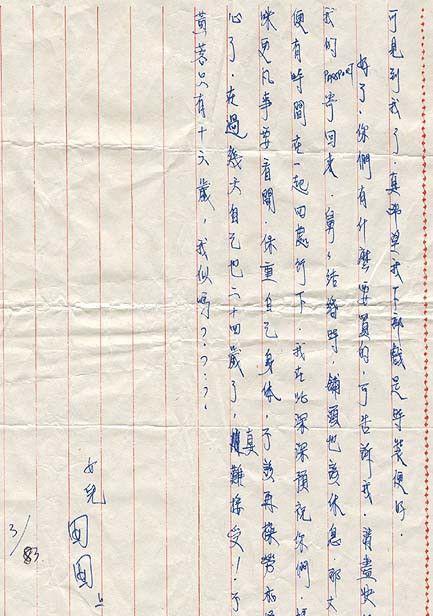 可見到我了．真盼望我下部戲是時裝便好．
好了．你們有什麼要買的，可告訴我．請盡快
我的 PASSPORT 寄回來．舅舅结婚時．鋪頭也該休息那大
便有時間在一起四處行下．我在此深深預祝你們．
咪更凡事要看開．保重自己身体，不該再操勞
心了．在過幾天自己也二十四歲了，真難接受！
黃蓉只有十六歲，我似嗎？？？？
女兒
囡囡上
3/83.